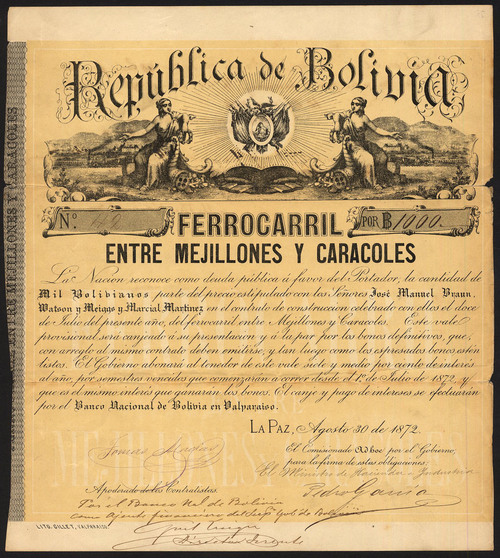 República de Bolivia
Nº
POR B 1000.
FERROCARRIL
ENTRE MEJILLONES Y CARACOLES
La Nacion reconoce como deuda pública á favor del Portador, la cantidad de
Mil Bolivianos, parte del precio estipulado con los Señores José Manuel Braun,
Watson y Meiggs y Marcial Martinez en el contrato de construccion celebrado con ellos el doce
de Julio del presente año, del ferrocarril entre Mejillones y Caracoles. Este vale
provisional será canjeado á su presentacion y á la par por los bonos definitivos, que,
con arreglo al mismo contrato deben emitirse, y tan luego como los espresados bonos estén
listos. El Gobierno abonará al tenedor de este vale siete y medio por ciento de interés
al año, por semestres vencidos que comenzarán a correr desde el 1º de Julio de 1872, y
que es el mismo interés que ganarán los bonos. El canje y pago de intereses se efectuarán
por el Banco Nacional de Bolivia en Valparaiso.
LA PAZ, Agosto 30 de 1872.
El Comisionado Adhoc por el Gobierno,
para la firma de estas obligaciones.
El Ministro de Hacienda é Industria
Apoderado de los Contratistas.
Pedro García
Por el Banco Nal. de Bolivia
como Ajente financiero del Sup. Gob. de Bolivia
LITO. GILLET, VALPARAISO.
ENTRE MEJILLONES Y CARACOLES